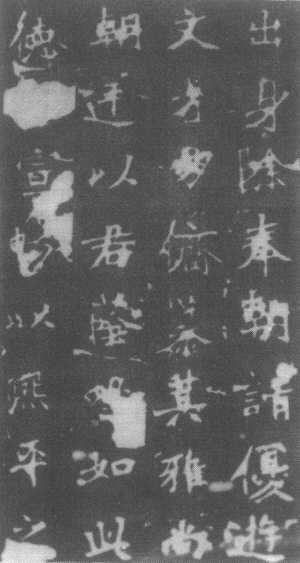 出身除奉朝請優遊
文朋儕慕其雅尚
朝廷以君蔭望如此
德宣暢以熙平之